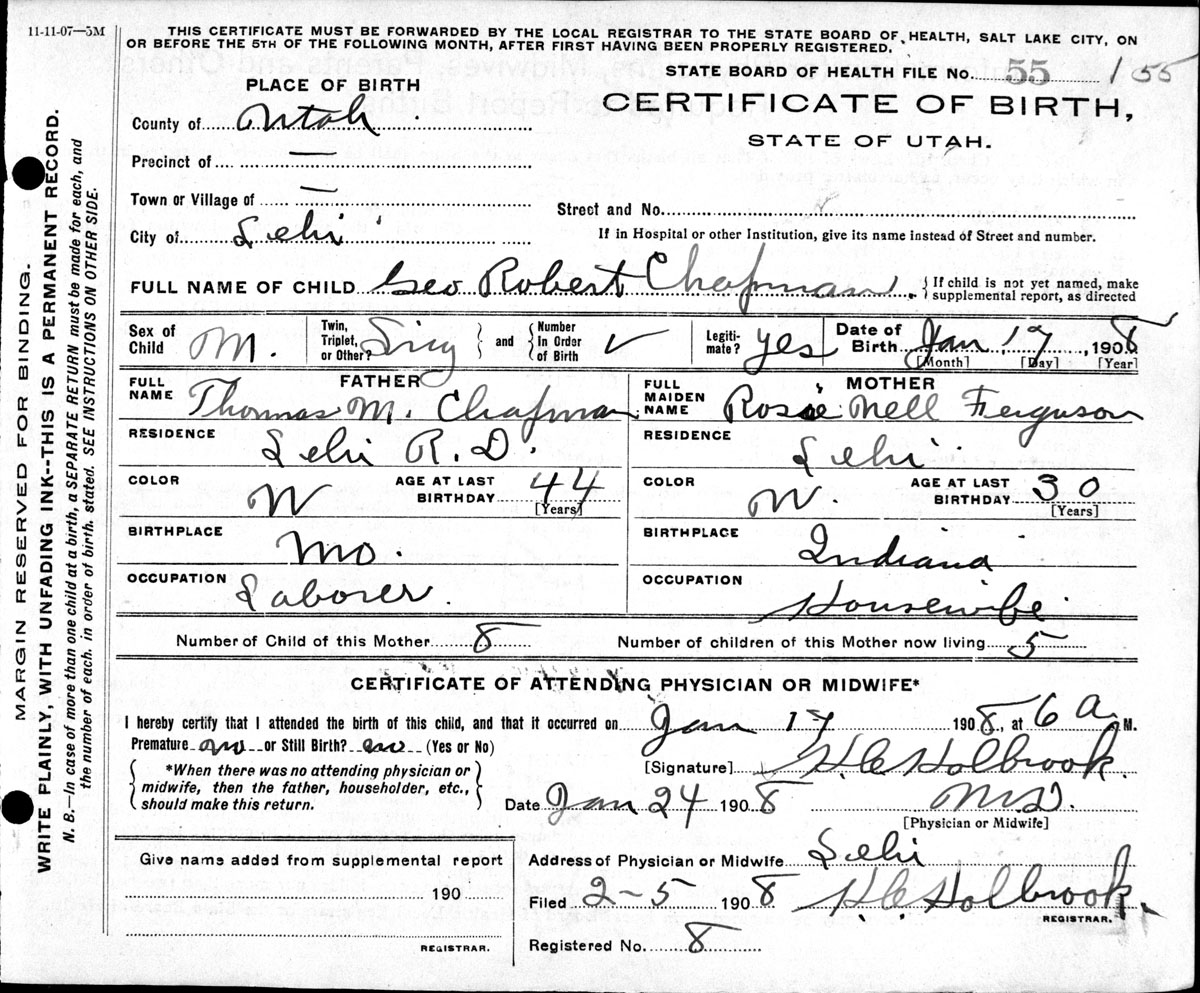 11-11-07—5M
THIS CERTIFICATE MUST BE FORWARDED BY THE LOCAL REGISTRAR TO THE STATE BOARD OF HEALTH, SALT LAKE CITY, ON
OR BEFORE THE 5TH OF THE FOLLOWING MONTH, AFTER FIRST HAVING BEEN PROPERLY REGISTERED.
STATE BOARD OF HEALTH FILE No. 55 155
PLACE OF BIRTH
CERTIFICATE OF BIRTH,
STATE OF UTAH.
County of Utah
Precinct of —
Town or Village of —
Street and No.
City of Lehi
If in Hospital or other Institution, give its name instead of Street and number.
FULL NAME OF CHILD Geo Robert Chapman. {If child is not yet named, make
supplemental report, as directed
Sex of Child M. Twin, Triplet, or Other? Sing } and { Number In Order of Birth ✓ Legiti-mate? yes Date of Birth Jan 17, 1908
[Month] [Day] [Year]
FATHER
FULL NAME Thomas M. Chapman
RESIDENCE Lehi R.D.
COLOR W AGE AT LAST BIRTHDAY 44
[Years]
BIRTHPLACE Mo.
OCCUPATION Laborer.
MOTHER
FULL MAIDEN NAME Rosie Nell Ferguson
RESIDENCE Lehi
COLOR W. AGE AT LAST BIRTHDAY 30
[Years]
BIRTHPLACE Indiana
OCCUPATION Housewife
Number of Child of this Mother 8 Number of children of this Mother now living 5
CERTIFICATE OF ATTENDING PHYSICIAN OR MIDWIFE*
I hereby certify that I attended the birth of this child, and that it occurred on Jan 17 1908, at 6 a M.
Premature no or Still Birth? no (Yes or No)
[Signature] H.C. Holbrook.
{*When there was no attending physician or
midwife, then the father, householder, etc.,
should make this return.}
Date Jan 24 1908 M.D.
[Physician or Midwife]
Give name added from supplemental report
190
REGISTRAR.
Address of Physician or Midwife Lehi
Filed 2-5 1908 H.C. Holbrook.
REGISTRAR.
Registered No. 8
MARGIN RESERVED FOR BINDING.
WRITE PLAINLY, WITH UNFADING INK--THIS IS A PERMANENT RECORD.
N. B.—In case of more than one child at a birth, a SEPARATE RETURN must be made for each, and
the number of each, in order of birth, stated. SEE INSTRUCTIONS ON OTHER SIDE.